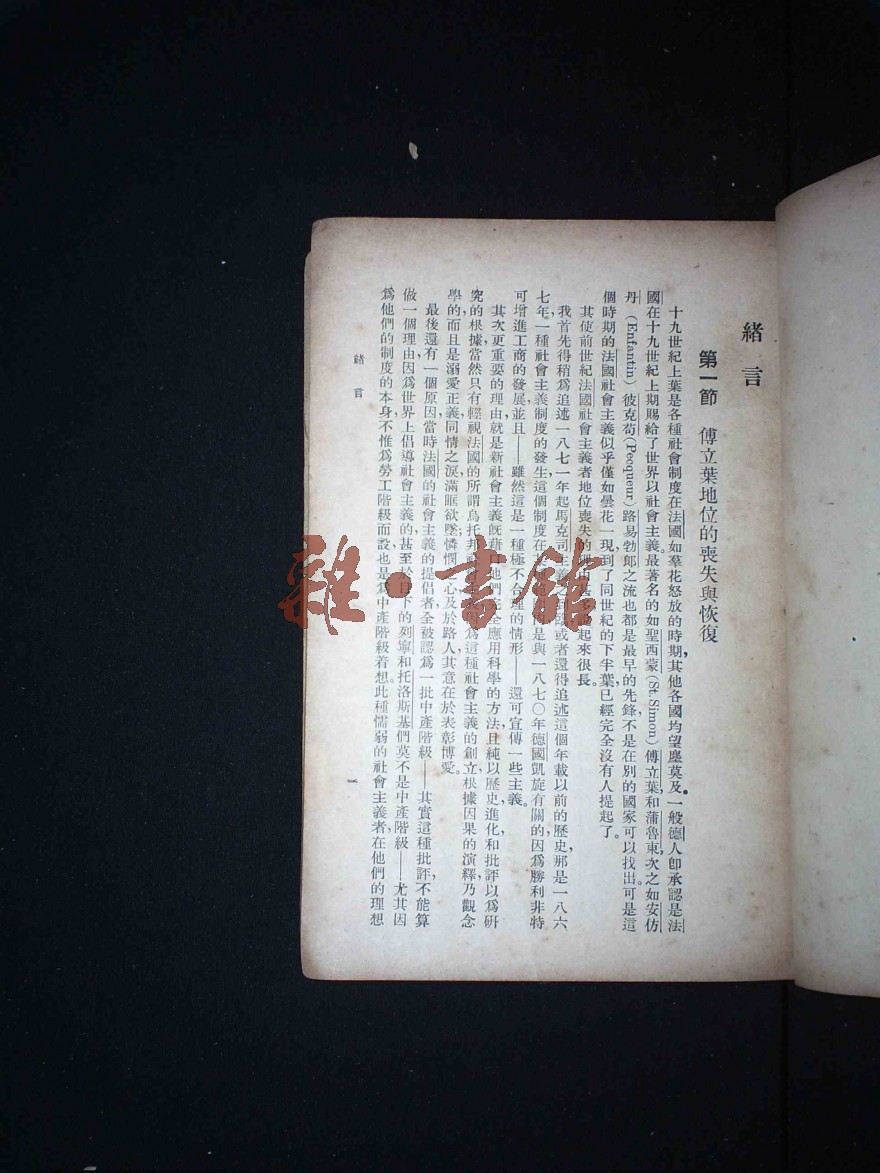 緒言
第一節 傅立葉地位的喪失與恢復
十九世紀上葉是各種社會制度在法國如羣花怒放的時期，其他各國均望塵莫及。一般德人卽承認是法
國在十九世紀上期賜給了世界以社會主義。最著名的如聖西蒙(St. Simon)傅立葉和蒲魯東，次之如安仿
丹(Enfantin)彼克荀(Pecqueur)路易勃郎之流也都是最早的先鋒，不是在別的國家可以找出。可是這
個時期的法國社會主義似乎僅如曇花一現，到了同世紀的下半葉已經完全沒有人提起了。
其使前世紀法國社會主義者地位喪失的 起來很長。
我首先得稍爲追述一八七一年起馬克司主 或者還得追述這個年載以前的歷史，那是一八六
七年，一種社會主義制度的發生，這個制度在 的是與一八七〇年德國凱旋有關的，因爲勝利非特
可增進工商的發展，並且——雖然這是一種極不合理的情形——還可宣傳一些主義。
其次更重要的理由，就是新社會主義旣藉口他們完全應用科學的方法，且純以歷史，進化和批評以爲研
究的根據，當然只有輕視法國的所謂烏托邦社 爲這種社會主義的創立，根據因果的演繹，乃觀念
學的，而且是溺愛正義，同情之淚，滿眶欲墜，憐憫之心，及於路人，其意在於表彰博愛。
最後還有一個原因，當時法國的社會主義的提倡者，全被認爲一批中產階級——其實這種批評，不能算
做一個理由，因爲世界上倡導社會主義的，甚至於目下的列寧和托洛斯基們，莫不是中產階級——尤其因
爲他們的制度的本身，不惟爲勞工階級而設，也是爲中產階級着想。此種懦弱的社會主義者，在他們的理想
緒言
一
雜·書館